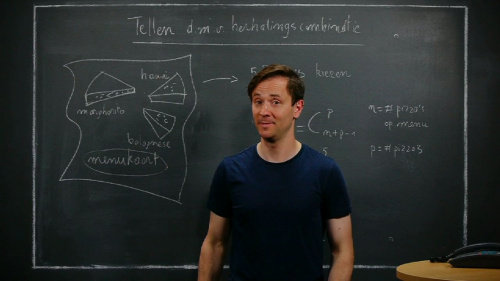 Tellen d.m.v. herhalingscombinatie
hawaï
margherita
bolognese
menukaart
kiezen
= C p n+p-1
5
n = # pizza's
op menu
p = # pizza's